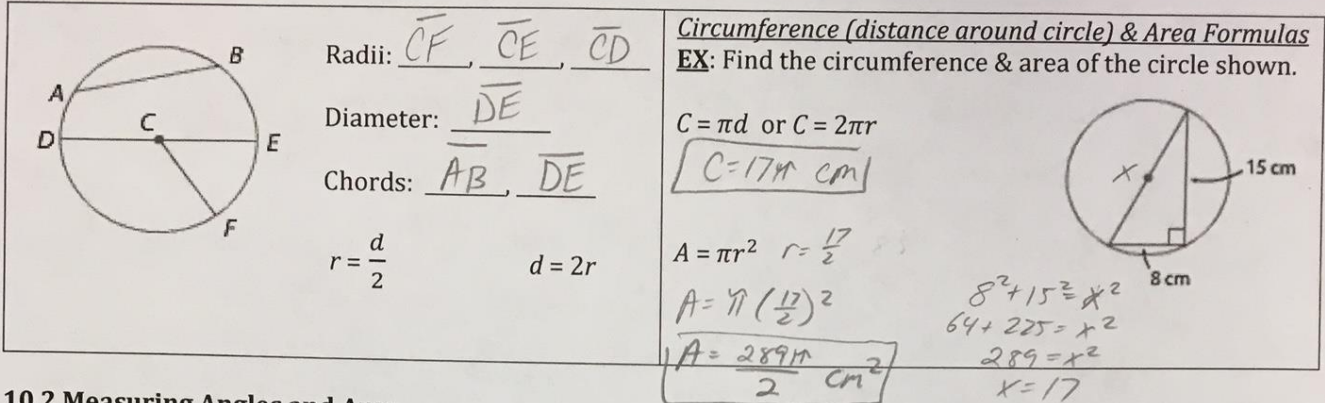 A
B
C
D
E
F
Radii: C̅F̅, C̅E̅, C̅D̅
Diameter: D̅E̅
Chords: A̅B̅, D̅E̅
r = d/2
d = 2r
Circumference (distance around circle) & Area Formulas
EX: Find the circumference & area of the circle shown.
C = πd or C = 2πr
C=17π cm
A = πr² r= 17/2
A= π (17/2)²
A= 289π/2 cm²
x
15 cm
8 cm
8²+15²=x²
64+225=x²
289=x²
x=17
10.2 Measuring Angles and